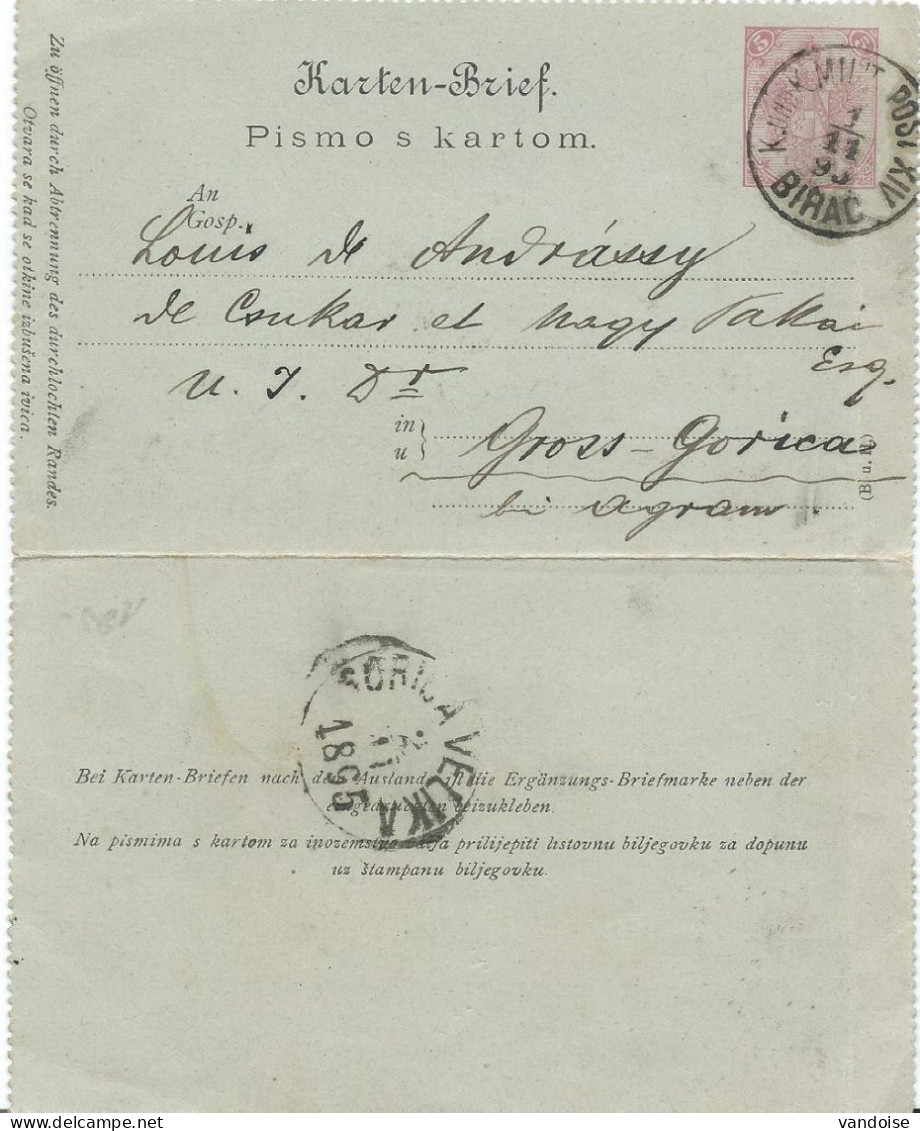 Karten-Brief.
Pismo s kartom.
5
5
K.UND K.MILIT. POST XIV
1/11
95
BIHAĆ
Zu öffnen durch Abtrennung des durchlochten Randes.
Otvara se kad se otkine izbušena ivica.
An
Gosp.
Louis de Andrássy
de Csukar et Nagy Takai
Esq.
U. J. Dr
in
u
Gross-Gorica
bei Agram.
(B. u. H.)
GORICA VELIKA
1895
Bei Karten-Briefen nach dem Auslande ist die Ergänzungs-Briefmarke neben der
eingedruckten beizukleben.
Na pismima s kartom za inozemstvo valja prilijepiti listovnu biljegovku za dopunu
uz štampanu biljegovku.
vandoise